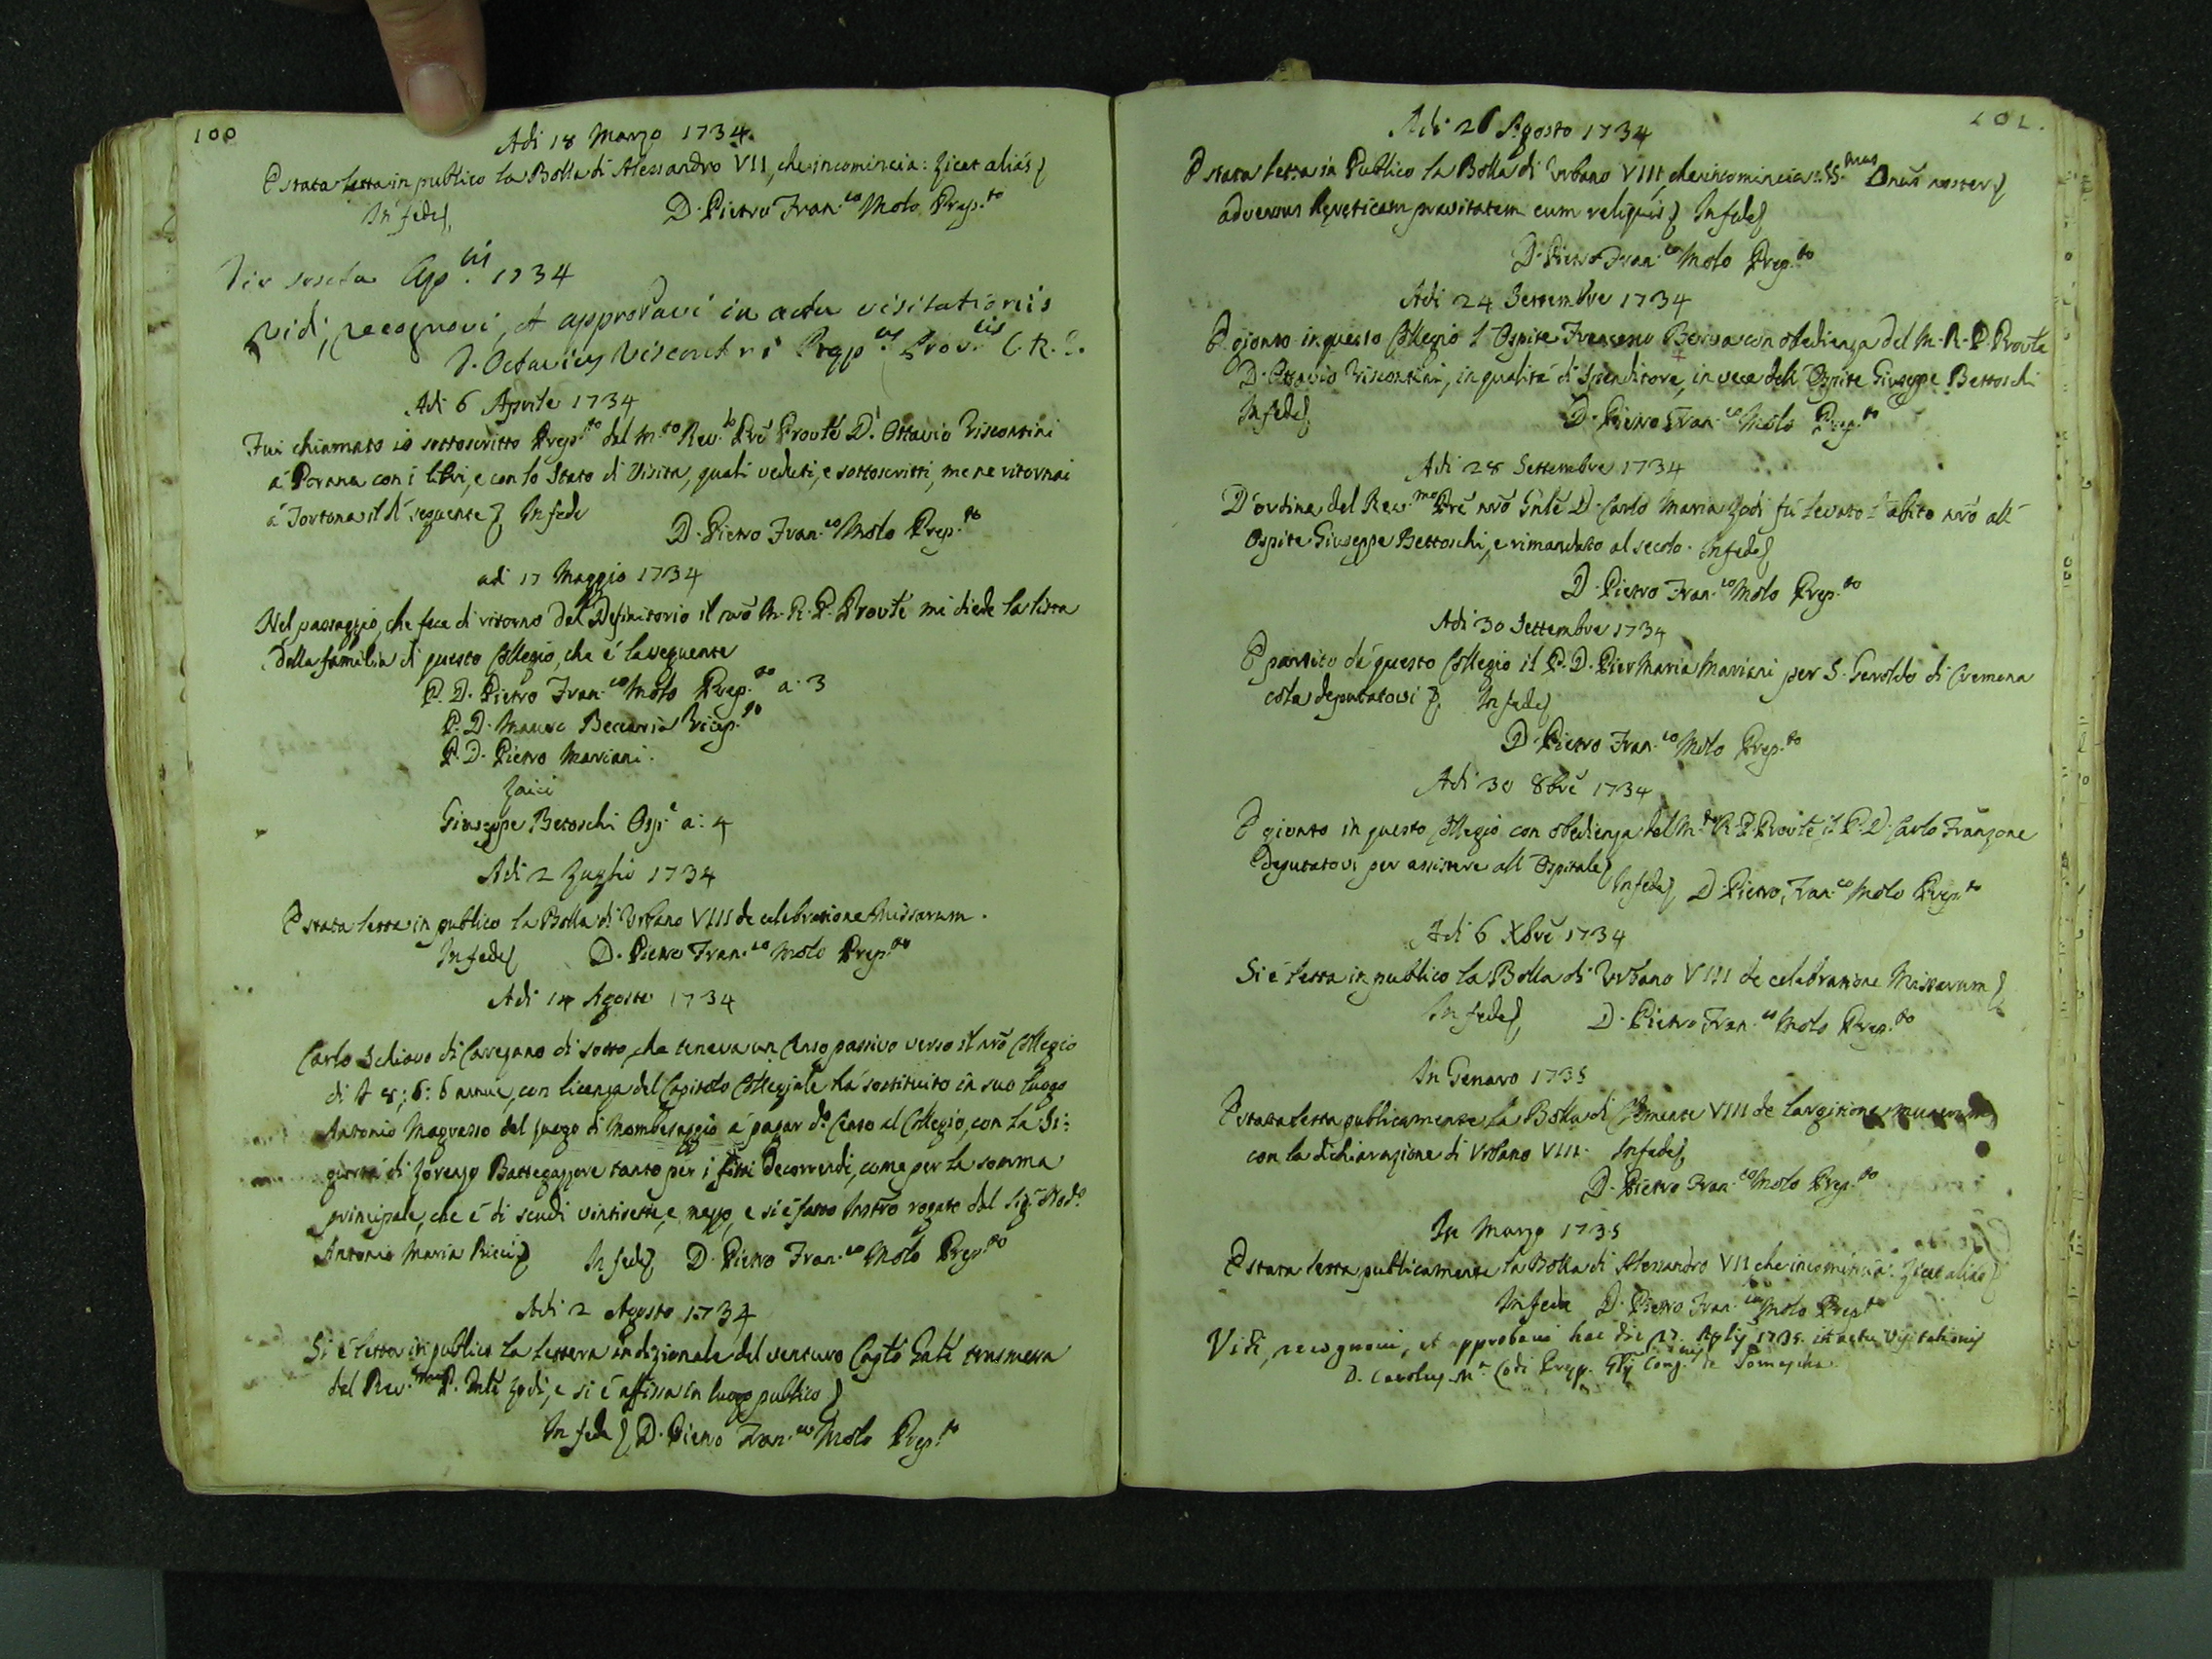 100
Adi 18 Marzo 1734.
È stata letta in publico la Bolla di Alessandro VII, che incomincia: Licet aliás
In fede
D. Pietro Fran.co Molo Prep.to
Die sexta Ap.lis 1734
Vidi, recognovi, et approbavi in actu visitationis
D. Octavius Vicecontri Prep.us Prov.lis C.R.S.
Adi 6 Aprile 1734
Fui chiamato io sottoscritto Prep.to dal M.to Rev.do Prẽ Provẽ D. Ottavio Viscontini
á Porana con i libri, e con lo Stato di Visita, quali veduti, e sottoscritti, me ne ritornai
á Tortona il dí seguente In fede
D. Pietro Fran.co Molo Prep.to
adi 17 Maggio 1734
Nel passaggio, che fece di ritorno dal Definitorio il nrõ M. R. P. Provlẽ mi diede la lista
della famiglia di questo Collegio, che é la seguente
P. D. Pietro Fran.co Molo Prep.to a: 3
P. D. Mauro Beccaria Vicep.to
P. D. Pietro Mariani.
Laici
Giuseppe Betoschi Osp.e a: 4
Adi 2 Luglio 1734
È stata letta in publico la Bolla di Urbano VIII de celebratione Missarum.
In fede D. Pietro Fran.co Molo Prep.to
Adi 14 Agosto 1734
Carlo Schiavo di Caregano di sotto, che teneva un Censo passivo verso il nrõ Collegio
di 8: 6: 6 annue, con licenza del Capitolo Collegiale há sostituito in suo luogo
Antonio Magrasso del luogo di Mombisaggio á pagar d.o Censo al Collegio, con la Si:
gurtá di Lorenzo Battegazzore tanto per i fitti decorrendi, come per la somma
principale, che é di scudi vintisette, e mezzo, e si é fatto Instrõ rogato dal Sig.r Nod.o
Antonio Maria Ricci In fede D. Pietro Fran.co Molo Prep.to
Adi 2 Agosto 1734
Si é letta in publico la lettera indizionale del venturo Caplõ Gnlẽ trasmessa
dal Rev.mo P. Gnlẽ Lodi, e si é affissa in luogo publico
In fede D. Pietro Fran.co Molo Prep.to
101.
Adi 26 Agosto 1734
È stata letta in Publico la Bolla di Urbano VIII, che incomincia: SS.mus Dnus noster
adversus Hereticam pravitatem cum reliquis In fede
D. Pietro Fran.co Molo Prep.to
Adi 24 Settembre 1734
È gionto in questo Collegio l'Ospite Francesco Berva con obedienza del M. R. P. Provlẽ
D. Ottavio Viscontini, in qualitá di Spenditore, in vece dell'Ospite Giuseppe Bettoschi
In fede D. Pietro Fran.co Molo Prep.to
Adi 28 Settembre 1734
D'ordine del Rev.mo Prẽ nrõ Gnlẽ D. Carlo Maria Lodi fú levato l'abito nrõ all'
Ospite Giuseppe Bettoschi, e rimandato al secolo. In fede
D. Pietro Fran.co Molo Prep.to
Adi 30 Settembre 1734
È partito da questo Collegio il P. D. Pier Maria Mariani per S. Geroldo di Cremona
cola deputatovi In fede
D. Pietro Fran.co Molo Prep.to
Adi 30 8brẽ 1734
È gionto in questo Collegio con obedienza del M.to R. P. Provlẽ il P. D. Carlo Franzone
Deputatovi per assistere all'Ospitale In fede D. Pietro Fran.co Molo Prep.to
Adi 6 Xbrẽ 1734
Si é letta in publico la Bolla di Urbano VIII de celebratione Missarum
In fede D. Pietro Fran.co Molo Prep.to
In Genaro 1735
È stata letta publicamente la Bolla di Clemente VIII de largitione munerum
con la dichiarazione di Urbano VIII. In fede
D. Pietro Fran.co Molo Prep.to
In Marzo 1735
È stata letta publicamente la Bolla di Alessandro VII che incomincia: Licet alias
In fede D. Pietro Fran.co Molo Prep.to
Vidi, recognovi, et approbavi hac die 27. Aplis 1735. in actu visitationis
D. Carolus M.a Lodi Prep. Glis Cong.nis de Somascha